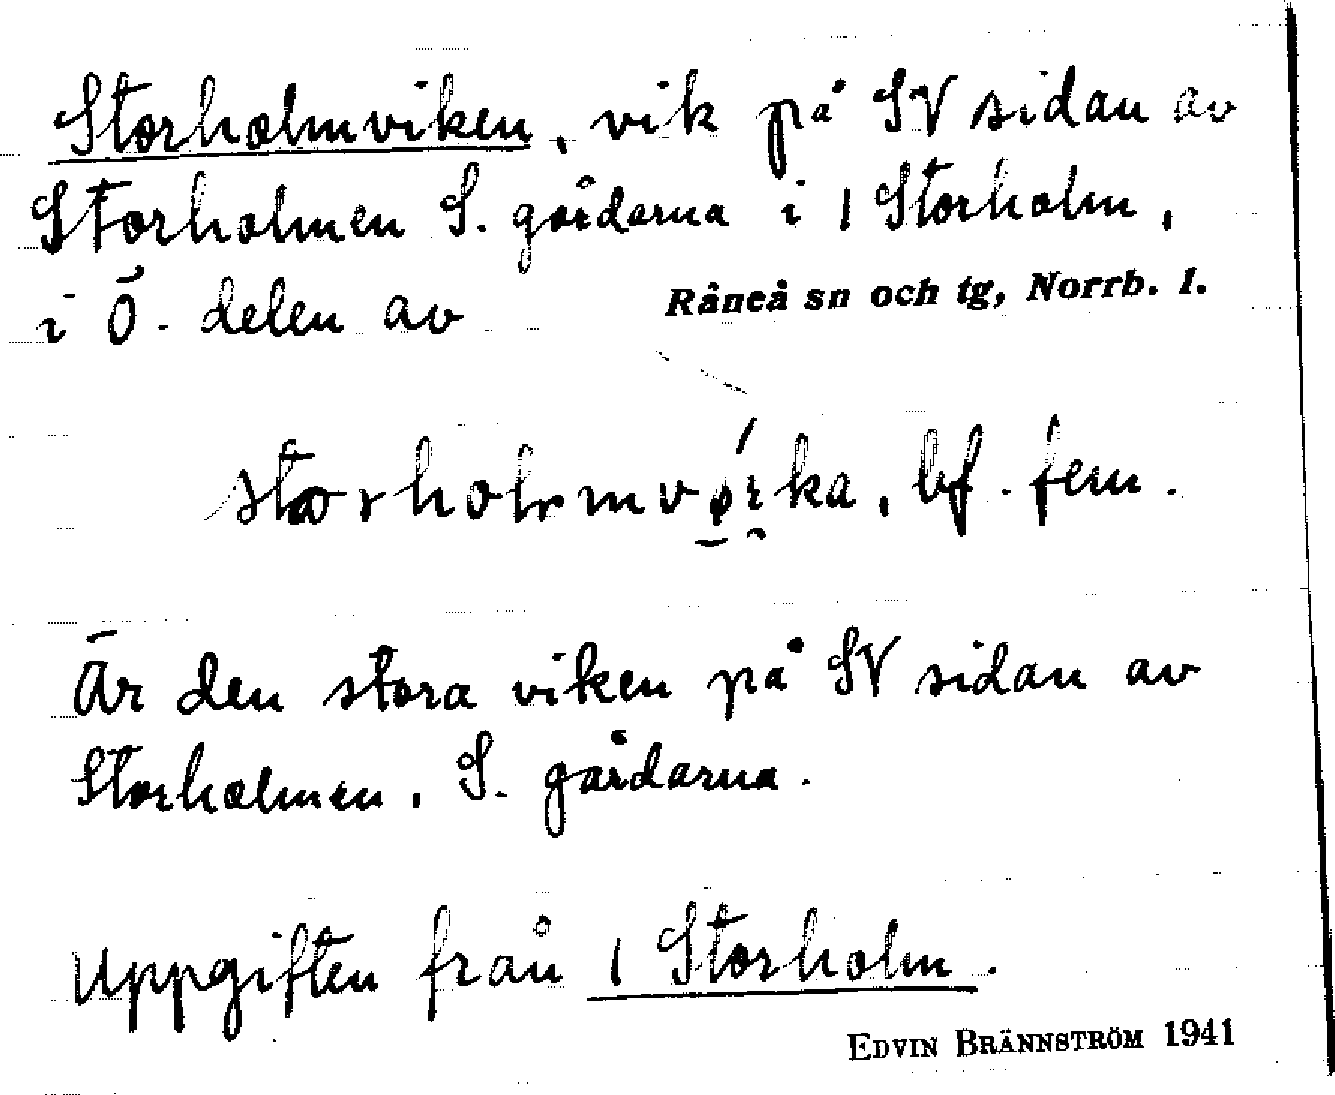 Storholmviken, vik på SV sidan av
Storholmen S. gårdarna i 1 Storholm,
i Ö. delen av Råneå sn och tg, Norrb. l.
storholmvǿ̯i̯ka, bf. fem.
Är den stora viken på SV sidan av
Storholmen, S. gårdarna.
Uppgiften från 1 Storholm.
EDVIN BRÄNNSTRÖM 1941